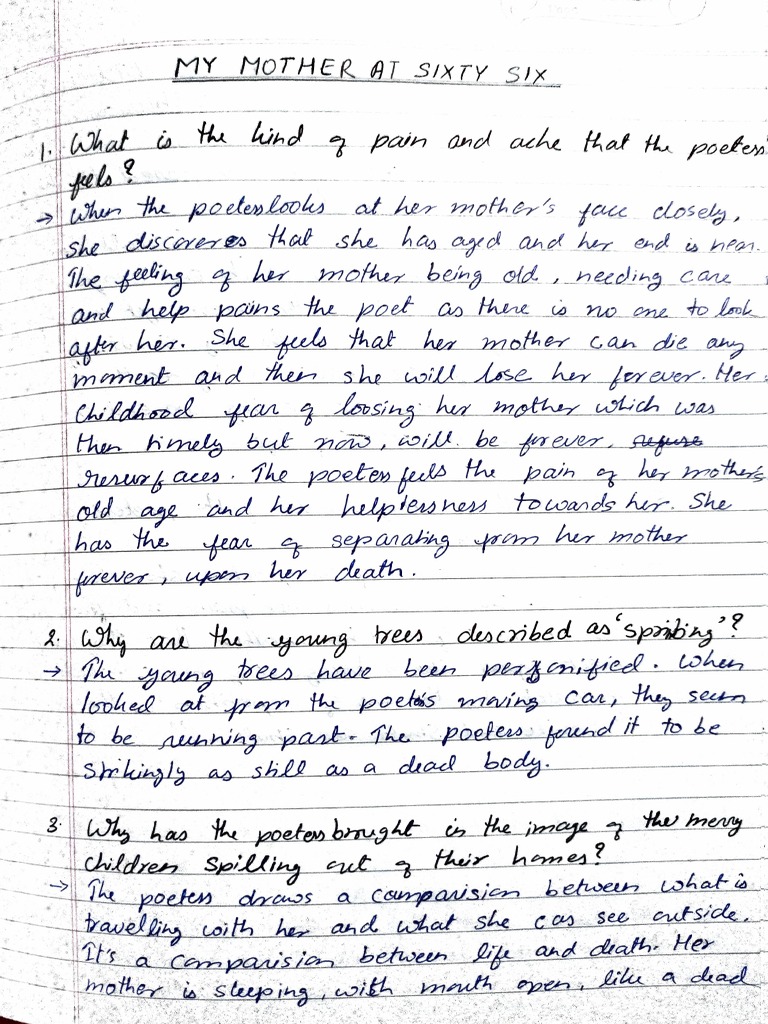 MY MOTHER AT SIXTY SIX
1. What is the kind of pain and ache that the poetess
feels?
→ When the poetess looks at her mother's face closely,
she discoveres that she has aged and her end is near.
The feeling of her mother being old, needing care
and help pains the poet as there is no one to look
after her. She feels that her mother can die any
moment and then she will lose her forever. Her
childhood fear of loosing her mother which was
then timely but now, will be forever,
resurfaces. The poetess feels the pain of her mother's
old age and her helplessness towards her. She
has the fear of separating from her mother
forever, upon her death.
2. Why are the young trees described as 'sprinting'?
→ The young trees have been personified. When
looked at from the poet's moving car, they seem
to be running past. The poetess found it to be
strikingly as still as a dead body.
3. Why has the poetess brought in the image of the merry
children spilling out of their homes?
→ The poetess draws a comparision between what is
travelling with her and what she cas see outside.
It's a comparision between life and death. Her
mother is sleeping, with mouth open, like a dead